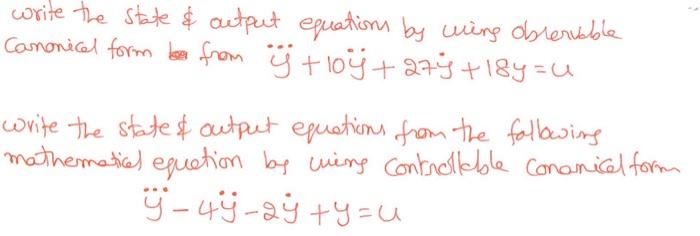 write the state & output equations by using observable
Canonical form from y⃛ + 10ÿ + 27ẏ + 18y = u
write the state & output equations from the following
mathematical equation by using Controllable Canonical form
y⃛ - 4ÿ - 2ẏ + y = u